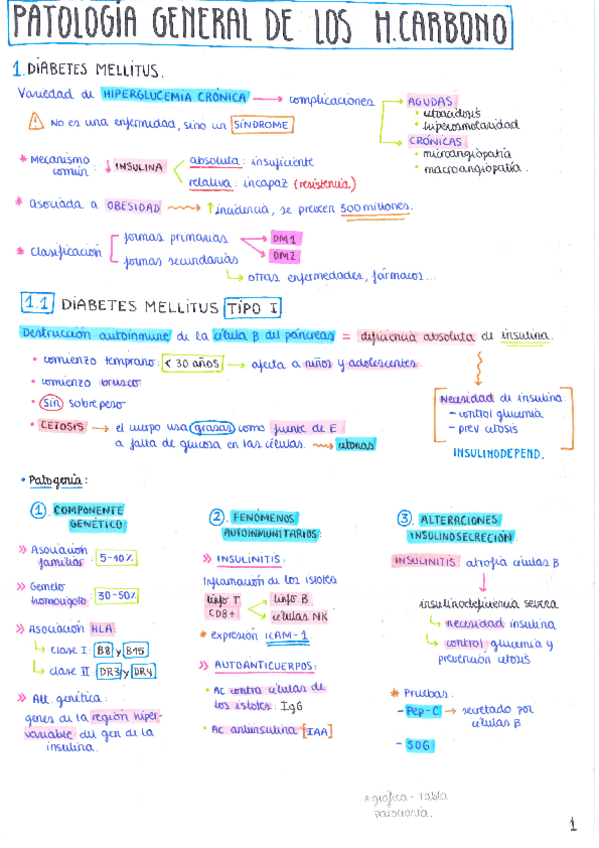 PATOLOGÍA GENERAL DE LOS H.CARBONO
1. DIABETES MELLITUS.
Variedad de HIPERGLUCEMIA CRÓNICA → complicaciones → AGUDAS
• cetoacidosis
• hiperosmolaridad
→ CRÓNICAS
• microangiopatía
• macroangiopatía.
⚠ NO es una enfermedad, sino un SÍNDROME
* Mecanismo común: ↓ INSULINA
absoluta: insuficiente
relativa: incapaz (resistencia)
* Asociada a OBESIDAD → ↑ incidencia, se prevén 300 millones.
* Clasificación
formas primarias → DM1
→ DM2
formas secundarias
↳ otras enfermedades, fármacos...
1.1 DIABETES MELLITUS TIPO I
Destrucción autoinmune de la célula B del páncreas = deficiencia absoluta de insulina.
• comienzo temprano: < 30 años → afecta a niños y adolescentes.
• comienzo brusco
• sin sobrepeso
• CETOSIS → el cuerpo usa grasas como fuente de E
a falta de glucosa en las células. → cetonas
Necesidad de insulina:
- control glucemia
- prev cetosis
INSULINODEPEND.
• Patogenia:
① COMPONENTE
GENÉTICO
» Asociación
familiar: 5-10%
» Gemelo
homocigoto: 30-50%
» Asociación HLA:
↳ clase I: B8 y B15
↳ clase II: DR3 y DR4
» Alt. genética:
genes de la región hiper-
variable del gen de la
insulina.
② FENÓMENOS
AUTOINMUNITARIOS:
» INSULINITIS:
Inflamación de los islotes
linfo T
CD8+
linfo B
células NK
* expresión ICAM-1
» AUTOANTICUERPOS:
• AC contra células de
los islotes: IgG
• AC antiinsulina [IAA]
③ ALTERACIONES
INSULINOSECRECIÓN
INSULINITIS atrofia células B
insulinodeficiencia severa
↳ necesidad insulina
↳ control glucemia y
prevención cetosis
* Pruebas:
- Pep-C → secretado por
células B
- SOG
* gráfica - Tabla
1